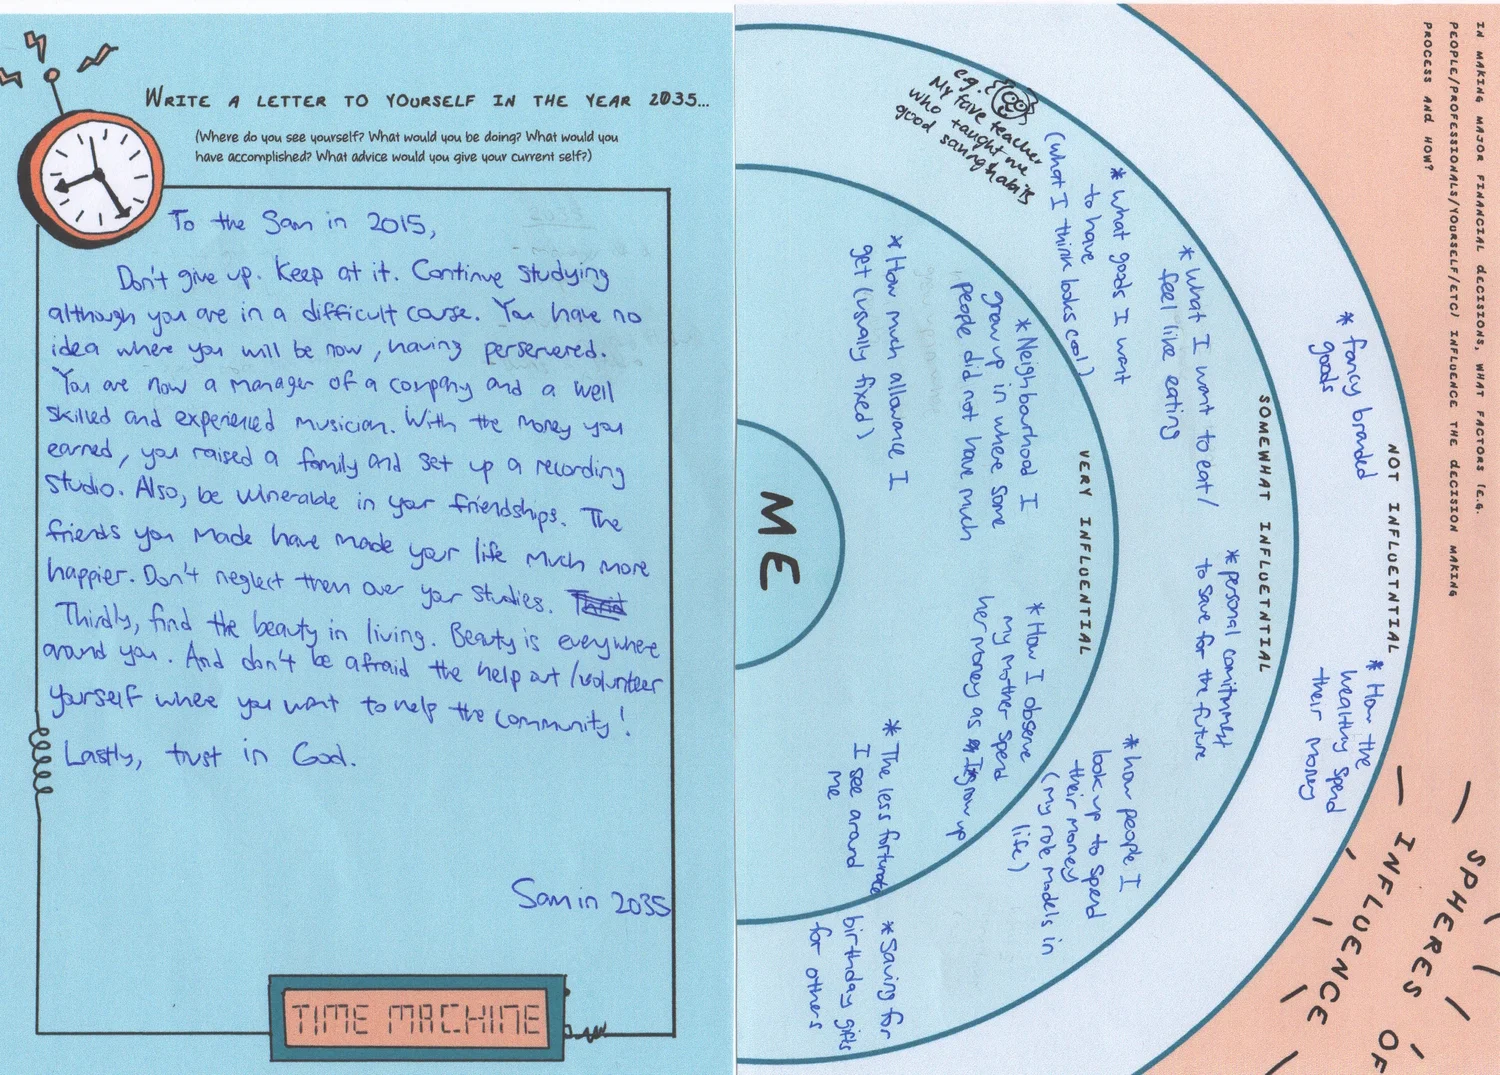 WRITE A LETTER TO YOURSELF IN THE YEAR 2035...
(Where do you see yourself? What would you be doing? What would you
have accomplished? What advice would you give your current self?)
To the Sam in 2015,
Don't give up. Keep at it. Continue studying
although you are in a difficult course. You have no
idea where you will be now, having perservered.
You are now a manager of a company and a well
skilled and experienced musician. With the money you
earned, you raised a family and set up a recording
studio. Also, be vulnerable in your friendships. The
friends you made have made your life much more
happier. Don't neglect them over your studies.
Thirdly, find the beauty in living. Beauty is everywhere
around you. And don't be afraid the help out/volunteer
yourself where you want to help the community!
Lastly, trust in God.
Sam in 2035
TIME MACHINE
IN MAKING MAJOR FINANCIAL DECISIONS, WHAT FACTORS (E.G.
PEOPLE/PROFESSIONALS/YOURSELF/ETC) INFLUENCE THE DECISION MAKING
PROCESS AND HOW?
SPHERES OF
INFLUENCE
NOT INFLUETNTIAL
* fancy branded
goods
* How the
wealthy spend
their money
SOMEWHAT INFLUETNTIAL
* What I want to eat/
feel like eating
* personal comitment
to save for the future
* What goods I want
to have
(what I think looks cool)
* how people I
look up to spend
their money
(my role models in
life)
e.g.
My fave teacher
who taught me
good saving habits
* Saving for
birthday gifts
for others
VERY INFLUENTIAL
* Neighbourhood I
grow up in where some
people did not have much
* How I observe
my mother spend
her money as I grow up
* How much allowance I
get (usually fixed)
* The less fortunate
I see around
me
ME